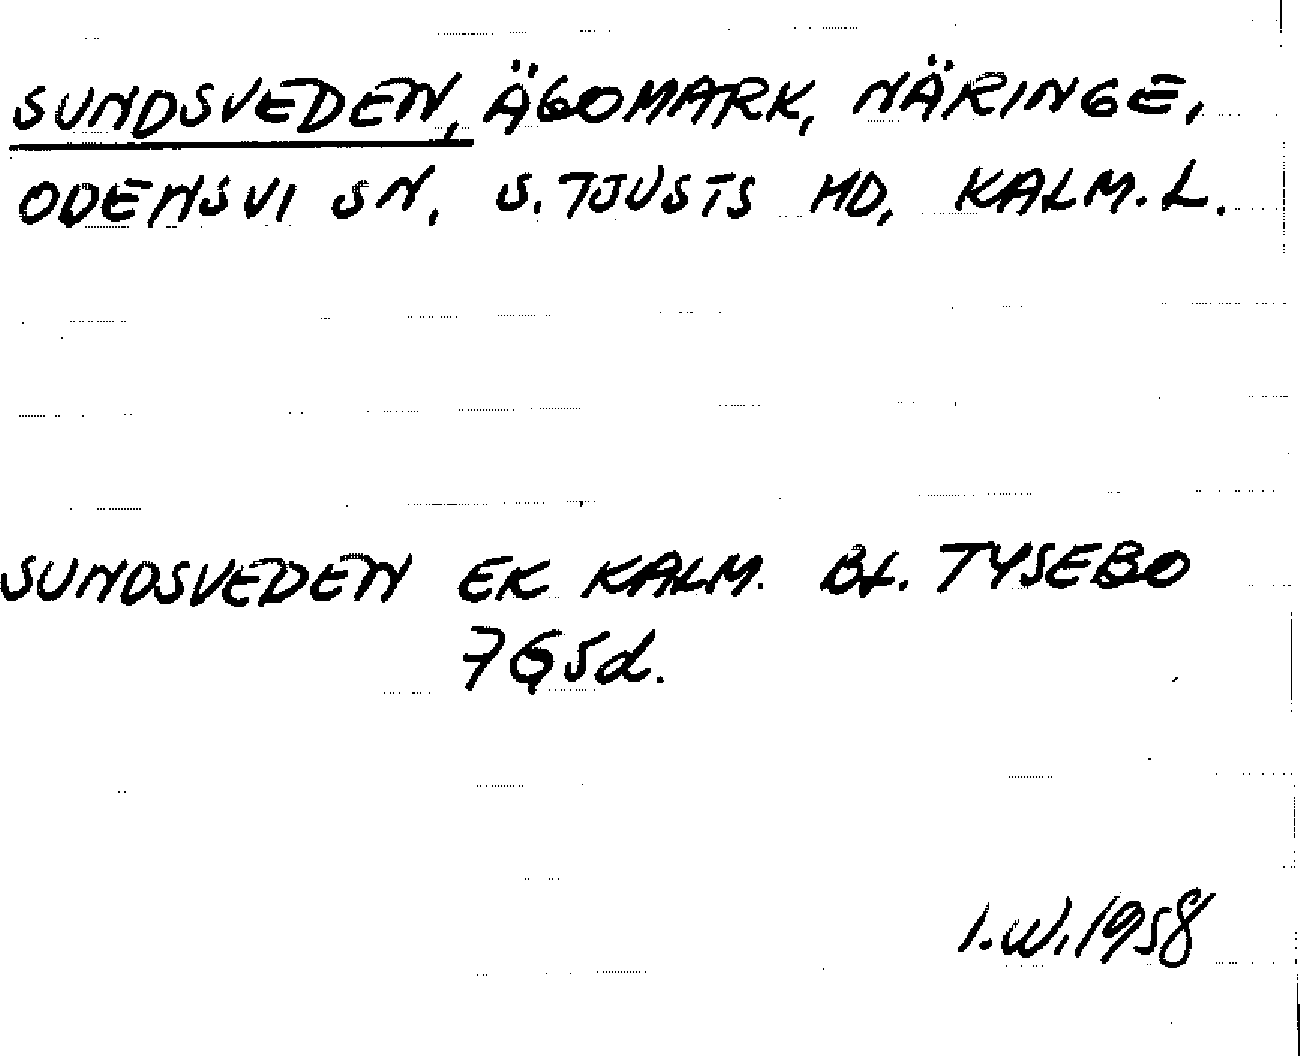 SUNDSVEDEN, ÄGOMARK, NÄRINGE,
ODENSVI SN, S. TJUSTS HD, KALM. L.
SUNDSVEDEN EK KALM. BL. TYSEBO
765d.
I.W. 1958